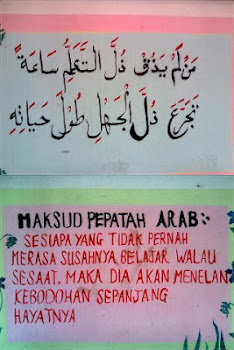 مَنْ لَمْ يَذُقْ ذُلَّ التَّعَلُّمِ سَاعَةً
تَجَرَّعَ ذُلَّ الْجَهْلِ طُوْلَ حَيَاتِهِ
MAKSUD PEPATAH ARAB:-
SESIAPA YANG TIDAK PERNAH
MERASA SUSAHNYA BELAJAR WALAU
SESAAT, MAKA DIA AKAN MENELAN
KEBODOHAN SEPANJANG
HAYATNYA